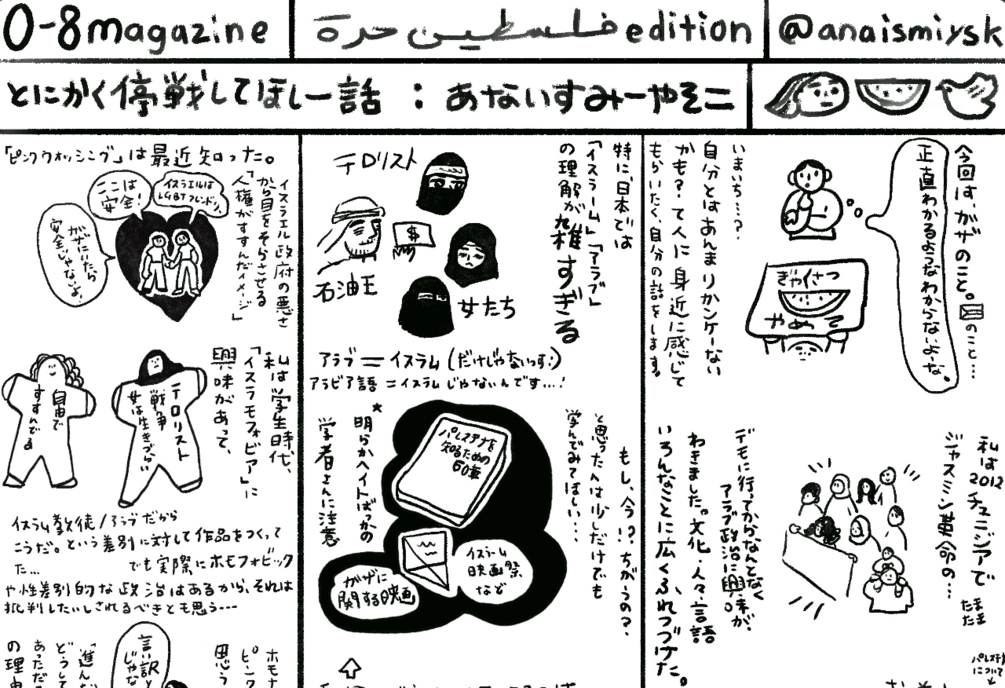 0-8magazine
فلسطين حرة edition
@anaismiysk
とにかく停戦してほしー話：あないすみーやそこ
今回は、ガザのこと。のこと…
正直わかるようなわからないよーな。
ぎゃくさつ
やめて
いまいち…？
自分とはあんまりカンケーない
かも？て人に身近に感じて
もらいたく、自分の話をします。
私は2012
チュニジアで
たまたま
ジャスミン革命の…
デモに行ってからなんとなく
アラブ政治に興味が
わきました。文化・人々・言語
いろんなことに広くふれつづけた。
特に、日本では
「イスラーム」「アラブ」
の理解が雑すぎる
テロリスト
$
石油王
女たち
アラブ＝イスラム(だけじゃないっす:)
アラビア語＝イスラムじゃないんです…!
もし、今!?ちがうの?、
と思った人は少しだけでも
学んでみてほしい…
パレスチナを
知るための
60章
イスラム
映画祭
など
ガザに
関する映画
*明らかヘイトばっかの
学者さんに注意
「ピンクウォッシング」は最近知った。
イスラエル政府の悪さ
から目をそらさせる
「人権がすすんだイメージ」
イスラエルは
LGBTフレンドリ
ここは
安全!
ガザにいたら
安全じゃないよ
私は学生時代、
「イスラモフォビア」に
興味があって、
テロリスト
戦争
女は生きづらい
自由で
すすんでる
イスラム教徒/アラブだから
こうだ。という差別に対して作品をつくって
た… でも実際にホモフォビック
や性差別的な政治はあるから、それは
批判したいしされるべきとも思う…
ホモナ
ピンク
思う
言い訳と
じゃな
「進んた
どうして
あっただ
の理由
パレスチ
について